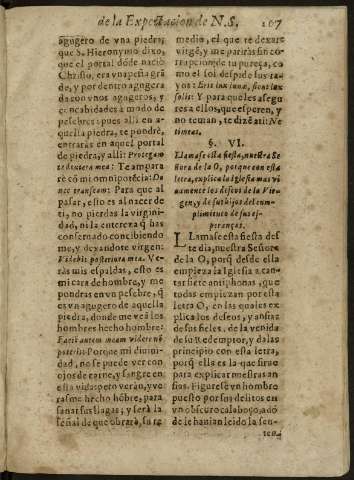 de la Expectacion de N.S. 107
agugero de vna piedra;
que S. Hieronymo dixo,
que el portal dõde naciò
Christo, era vna peña grã
de, y por dentro agugera
da con vnos agugeros, y
concabidades à modo de
pesebres: pues alli en a-
quella piedra, te pondrè,
entraràs en aquel portal
de piedra, y alli: Protegam
te dextera mea: Te ampara
rè cõ mi omnipotẽcia: Do
nec transeam: Para que al
passar, esto es al nacer de
ti, no pierdas la virgini-
dad, ni la entereza q̃ has
conseruado concibiendo
me, y dexandote virgen:
Videbis posteriora mea. Ve-
ràs mis espaldas, esto es
mi cara de hombre, y me
pondras en vn pesebre, q̃
es vn agugero de aquella
piedra, donde me veà los
hombres hecho hombre:
Faciẽ autem meam videre nõ
poteris: Porque mi diuini-
dad, no se puede ver con
ojos de carne, y sangre en
esta vida; pero veràn, y ve
ràsme hecho hõbre, para
sanar sus llagas; y serà la
señal de que obrarà, su re
medio, el que te dexarè
virgẽ, y me pariràs sin co-
rrupcion de tu pureça, co
mo el sol despide sus ra-
yos: Erit iux iunæ, sicut lux
solis: Y para que les asegu
res a ellos, que esperen, y
no teman, te dizẽ a ti: Ne
timeas.
§. VI.
Llamase esta fiesta, nuestra Se
ñora de la O, porque con esta
letra, explica la Iglesia mas vi
uamente los deseos de la Vir-
gen, y de sus hijos del cum-
plimiento de sus es-
peranças.
LLamase esta fiesta des
te dia, nuestra Señora
de la O, porq̃ desde ella
empieza la Iglesia a can-
tar siete antiphonas, que
todas empiezan por esta
letra O, en las quales ex
plica los deseos, y ansias
de sus fieles, de la venida
de su Redemptor, y dalas
principio con esta letra,
porq̃ ella es la que sirue
para explicar nuestras an
sias. Figurese vn hombre
puesto por sus delitos en
vn obscuro calaboço, adõ
de le hanian leido la sen-
ten-